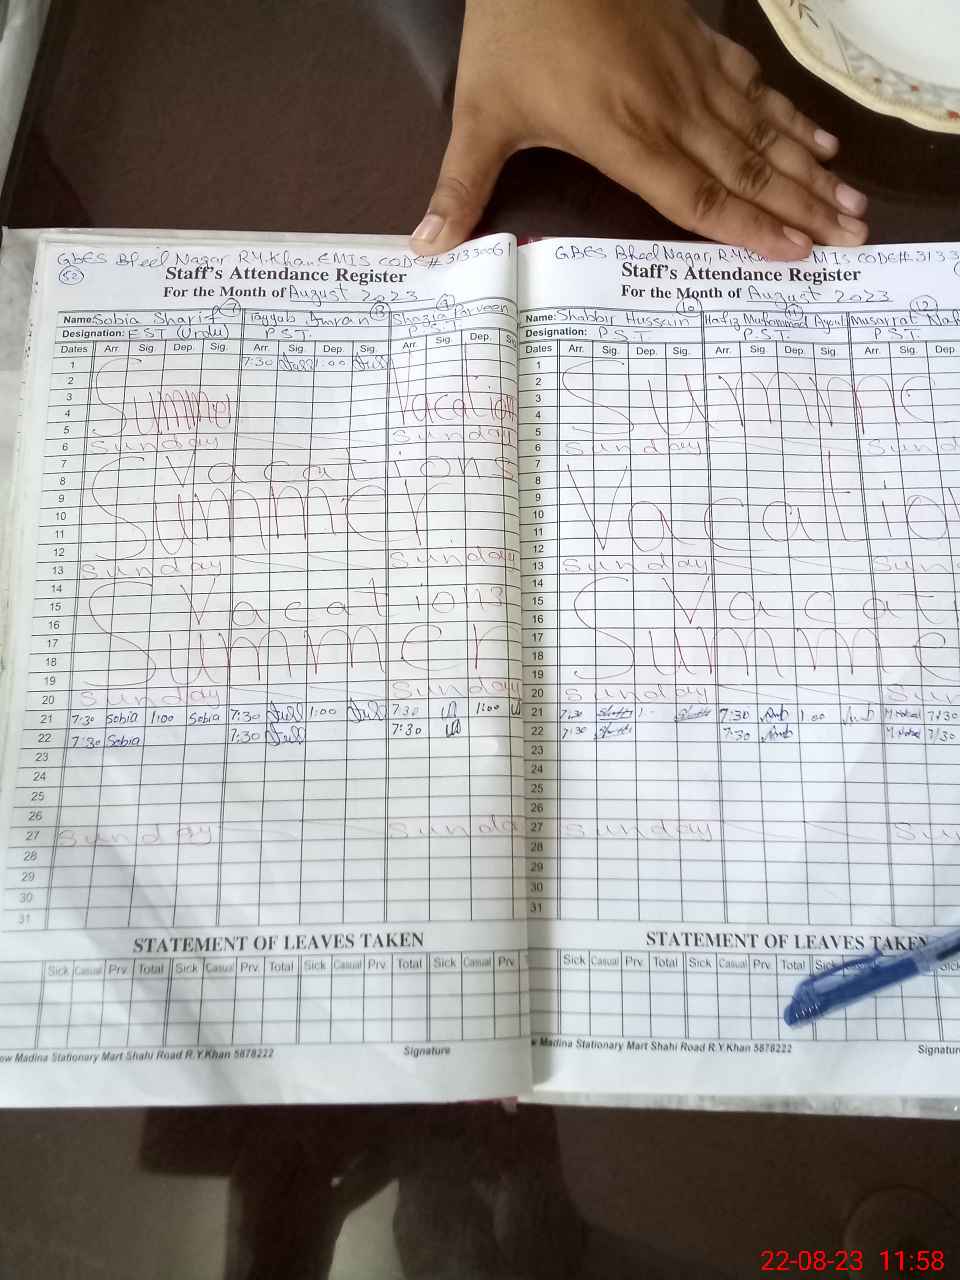 GBES Bheel Nagar R.Y.Khan EMIS CODE# 31330061
52
Staff's Attendance Register
For the Month of August 2023
Name: Sobia Sharif 7 Tayyab Imran 8 Shazia Parveen 9
Designation: EST (Urdu) P.S.T. P.S.T.
Dates Arr. Sig. Dep. Sig. Arr. Sig. Dep. Sig. Arr. Sig. Dep.
1 7:30 1:00
2
3
4 Summer Vacation
5
6 Sunday Sunday
7
8 Vacations
9
10 Summer
11
12
13 Sunday Sunday
14
15 Vacations
16
17 Summer
18
19
20 Sunday Sunday
21 7:30 Sobia 1:00 Sobia 7:30 1:00 7:30 1:00
22 7:30 Sobia 7:30 7:30
23
24
25
26
27 Sunday Sunda
28
29
30
31
STATEMENT OF LEAVES TAKEN
Sick Casual Prv. Total Sick Casual Prv. Total Sick Casual Prv. Total Sick Casual Prv.
ew Madina Stationary Mart Shahi Road R.Y.Khan 5878222 Signature
GBES Bheel Nagar, R.Y.K EMIS CODE# 3133
Staff's Attendance Register
For the Month of August 2023
Name: Shabbir Hussain 10 Hafiz Muhammad 11 Musarrat 12
Designation: P.S.T. P.S.T. P.S.T.
Dates Arr. Sig. Dep. Sig. Arr. Sig. Dep. Sig. Arr. Sig. Dep
1
2
3 Summe
4
5
6 Sunday Sund
7
8
9
10 Vacation
11
12
13 Sunday Sun
14
15 Vacat
16
17 Summe
18
19
20 Sunday Sun
21 7:30 7:30 1:00 7:30
22 7:30 7:30 7:30
23
24
25
26
27 Sunday Su
28
29
30
31
STATEMENT OF LEAVES TAKEN
Sick Casual Prv. Total Sick Casual Prv. Total Sick
w Madina Stationary Mart Shahi Road R.Y.Khan 5878222 Signatur
22-08-23 11:58